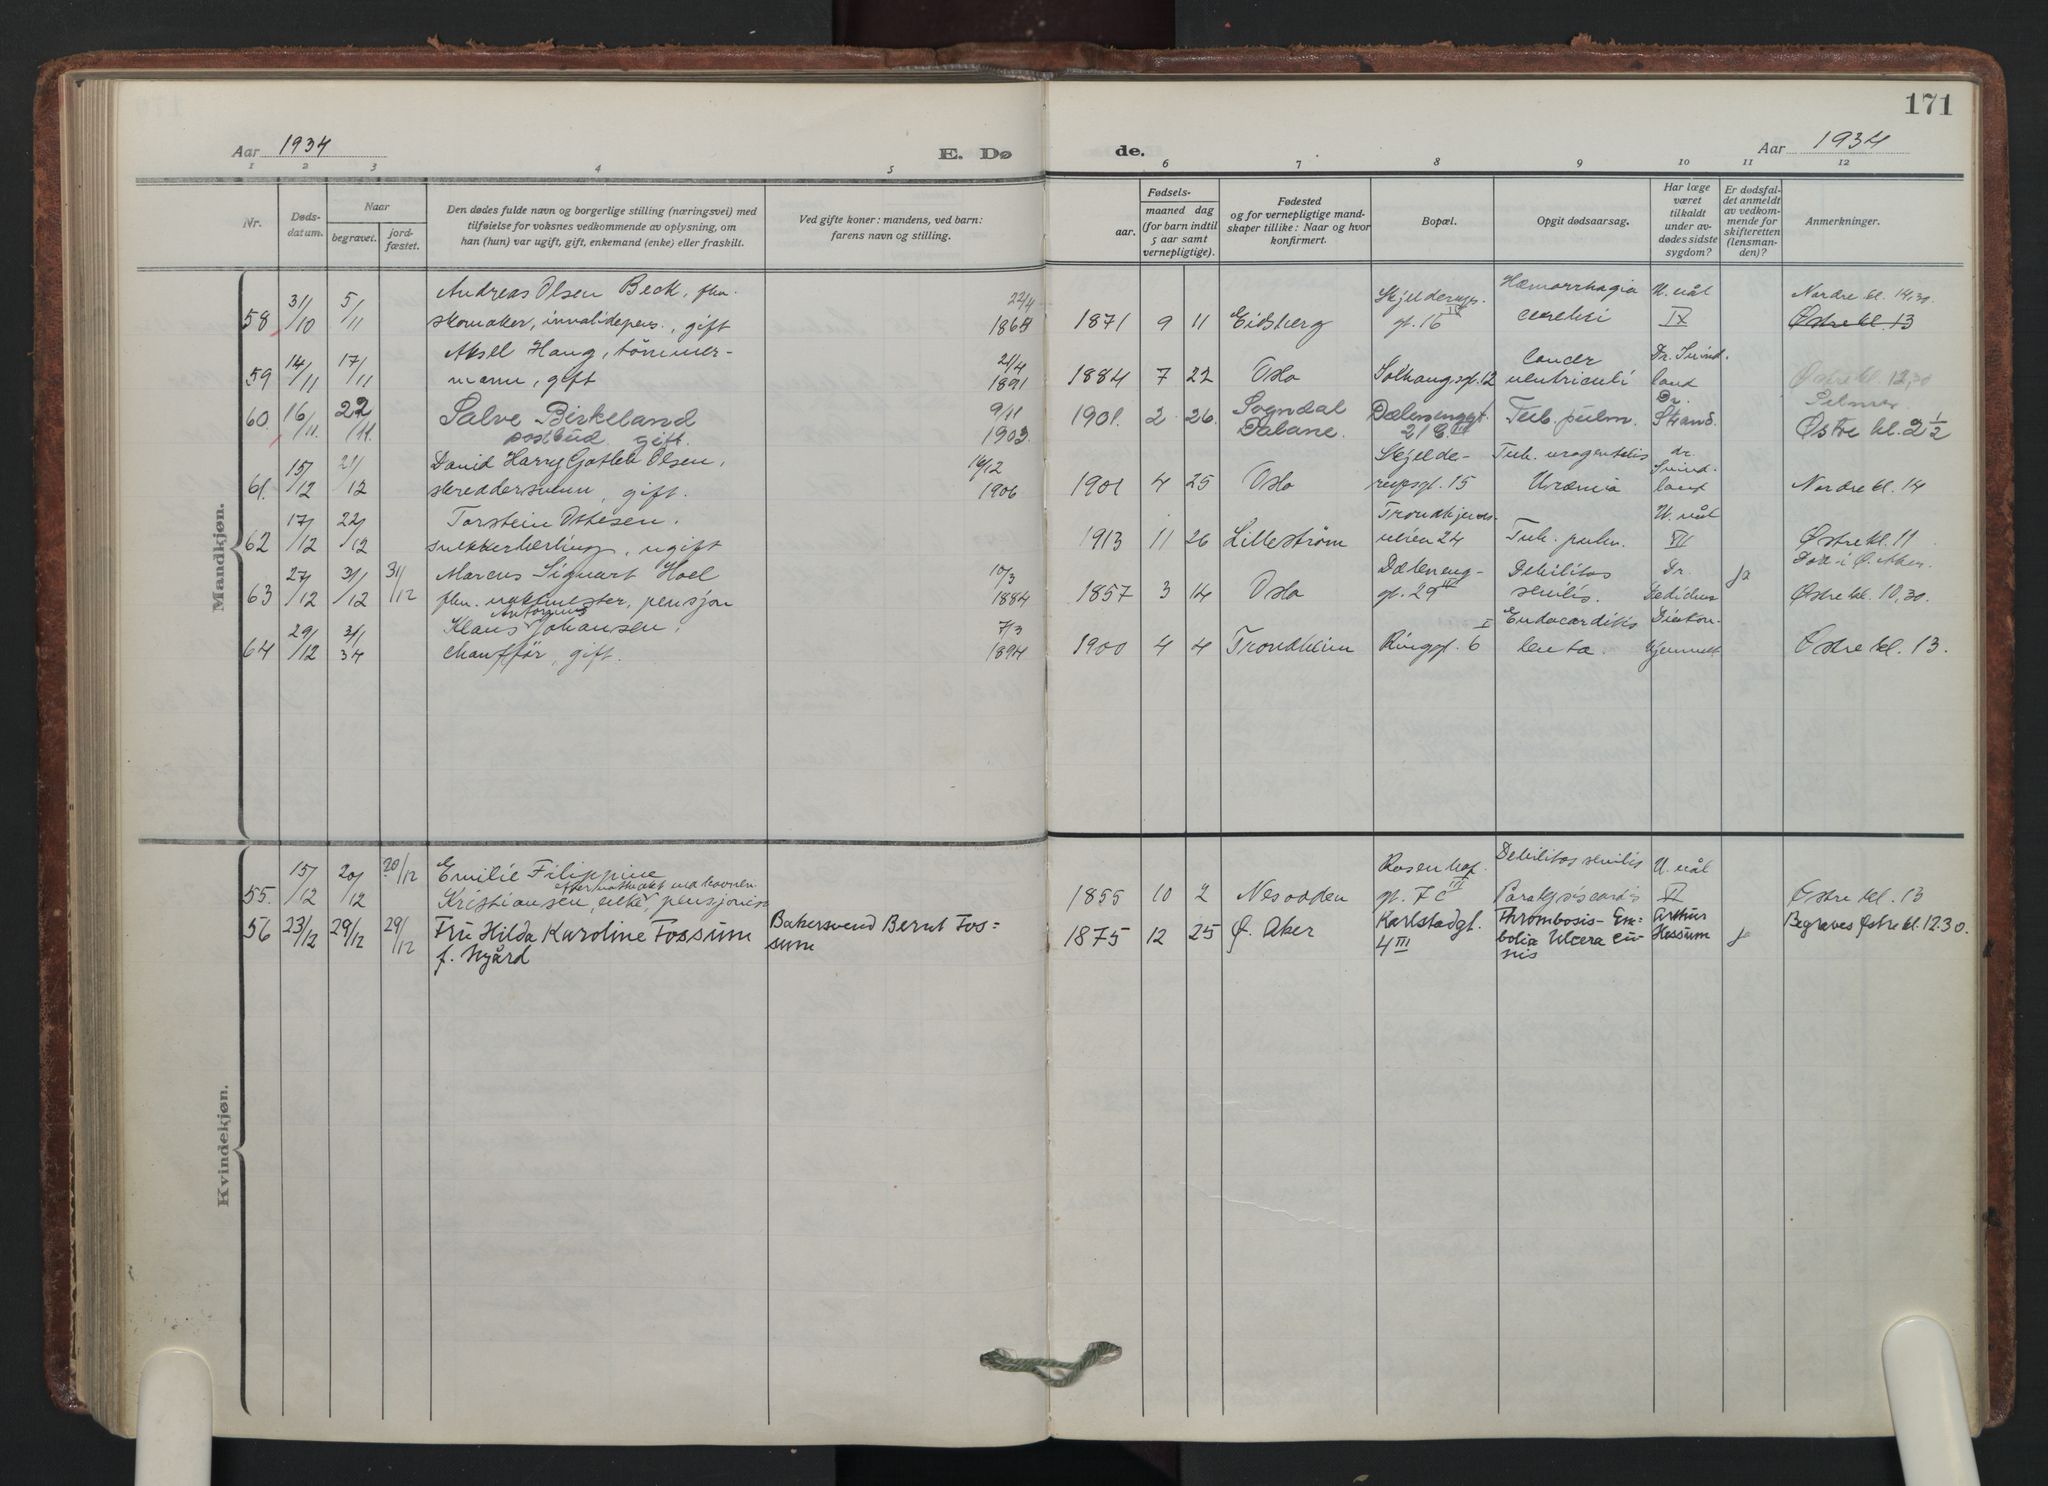 171
Aar 1934 E. Dø de. Aar 1934
1 2 3 4 5 6 7 8 9 10 11 12
Nr. Dødsdatum. Naar begravet. jordfæstet. Den dødes fulde navn og borgerlige stilling (næringsvei) med tilføielse for voksnes vedkommende av oplysning, om han (hun) var ugift, gift, enkemand (enke) eller fraskilt. Ved gifte koner: mandens, ved barn: farens navn og stilling. Fødsels- aar. maaned dag (for barn indtil 5 aar samt vernepligtige). Fødested og for vernepligtige mandskaper tillike: Naar og hvor konfirmert. Bopæl. Opgit dødsaarsag. Har læge været tilkaldt under avdødes sidste sygdom? Er dødsfaldet anmeldt av vedkommende for skifteretten (lensmanden)? Anmerkninger.
Mandkjøn.
Andreas Olsen Beck, fhv. 22/4 Skjelderups- Hæmorrhagia U. uål Nordre kl. 14,30
58 31/10 5/11 skomaker, invalidepens., gift 1871 9 11 Eidsberg gt. 16 IV cerebri IX Østre kl. 13
Aksel Haug, tømmer- 21/4 Cancer Dr. Svind-
59 14/11 17/11 mann, gift 1891 1884 7 22 Oslo Solhaugsgt. 12 ventriculi land Østre kl. 12,30
60. 16/11. 22/11. Salve Birkeland 9/11 1901. 2 26 Sogndal Dælenenggt. Tub. pulm. Dr. Strand.
postbud gift. 1903. Dalane. 21 C III Østre kl. 2 1/2
David Harry Gotleb Olsen, 16/12 Skjelde- Tub. urogenitalis dr. Svind-
61. 15/12 21/12 skreddersvenn, gift. 1906 1901 4 25 Oslo rupsgt. 15 Uræmia land Nordre kl. 14
Torstein Ottesen, Trondhjems- U. uål
62 17/12 22/12 snekkerlærling, ugift 1913 11 26 Lillestrøm veien 24 Tub. pulm. VII Østre kl. 11
Marcus Sigvart Hoel 10/3 Dæleneng- Debilitas Dr. Død i Ø. Aker
63 27/12 31/12 31/12 fhv. vaktmester, pensjon 1884 1857 3 14 Oslo gt. 29 III senilis. ja Østre kl. 10,30.
Klaus Antonius Johansen, 7/3 Endocarditis Diakon-
64 29/12 3/1 34 chauffør, gift. 1894 1900 4 4 Trondheim Ringgt. 6 I lenta. hjemmet Østre kl. 13.
Kvindekjøn.
Emilie Filippine Rosenhof- Debilitas senilis U. uål
55. 15/12 20/12 20/12 Kristiansen, enke pensjonist 1855 10 2 Nesodden gt. 7c III Paralysis cordis Østre kl. 13
56 23/12 29/12 29/12 Fru Hilda Karoline Fossum Bakersvend Bernt Fos= 1875 12 25 Ø. Aker Karlstadgt. Thrombosis-Em= Arthur Begraves Østre kl. 12.30.
f. Nygård sum 4 III bolia Ulcera cru= ris